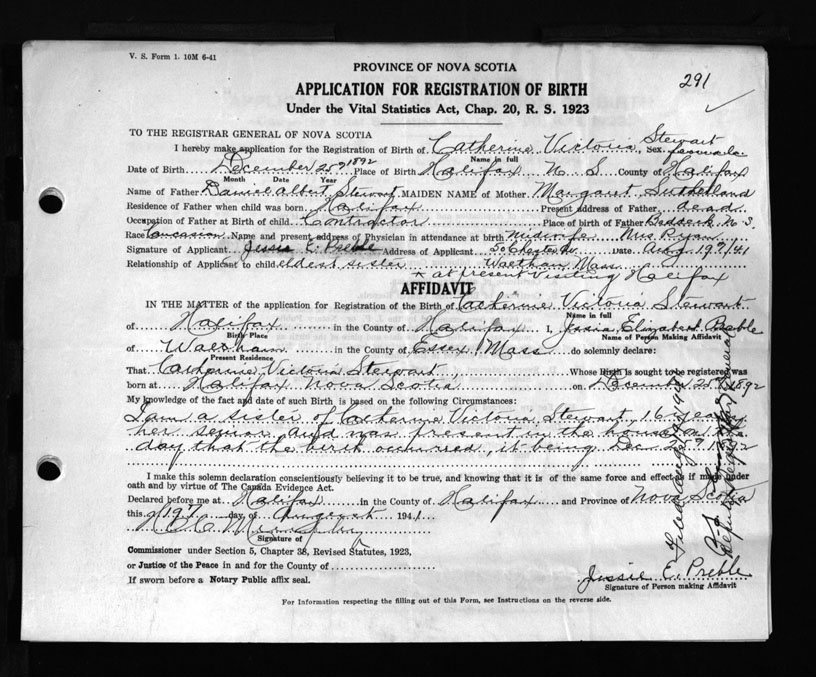 V. S. Form 1. 10M 6-41
PROVINCE OF NOVA SCOTIA
291
APPLICATION FOR REGISTRATION OF BIRTH
Under the Vital Statistics Act, Chap. 20, R. S. 1923
TO THE REGISTRAR GENERAL OF NOVA SCOTIA
Stewart
I hereby make application for the Registration of Birth of Catherine Victoria, Sex female
Name in full
Date of Birth December 25th 1892 Place of Birth Halifax N S County of Halifax
Month Date Year
Name of Father Daniel Albert Stewart MAIDEN NAME of Mother Margaret Sutherland
Residence of Father when child was born Halifax Present address of Father dead
Occupation of Father at Birth of child Contractor Place of birth of Father Baddeck N.S.
Race Caucasion Name and present address of Physician in attendance at birth midwife Mrs Ryan
Signature of Applicant Jessie E. Preble Address of Applicant 50 St Date Aug 19th/41
Relationship of Applicant to child eldest sister Waltham Mass
x at present visiting Halifax
AFFIDAVIT
IN THE MATTER of the application for Registration of the Birth of Catherine Victoria Stewart
Name in full
of Halifax in the County of Halifax I, Jessie Elizabeth Preble
Birth Place Name of Person Making Affidavit
of Waltham in the County of Essex Mass do solemnly declare:
Present Residence
That Catherine Victoria Stewart, Whose Birth is sought to be registered was
born at Halifax Nova Scotia on December 25th 1892
My knowledge of the fact and date of such Birth is based on the following Circumstances:
I am a sister of Catherine Victoria Stewart, 16 years
her senior and was present in the house on the
day that the birth occurred, it being Dec 25th 1892
I make this solemn declaration conscientiously believing it to be true, and knowing that it is of the same force and effect as if made under
oath and by virtue of The Canada Evidence Act.
Declared before me at Halifax in the County of Halifax and Province of Nova Scotia
this 19th day of August 1941
Signature of
Commissioner under Section 5, Chapter 38, Revised Statutes, 1923,
or Justice of the Peace in and for the County of
If sworn before a Notary Public affix seal.
Jessie E. Preble
Signature of Person making Affidavit
For Information respecting the filling out of this Form, see Instructions on the reverse side.
Filed Aug 19 1941
Deputy Registrar General